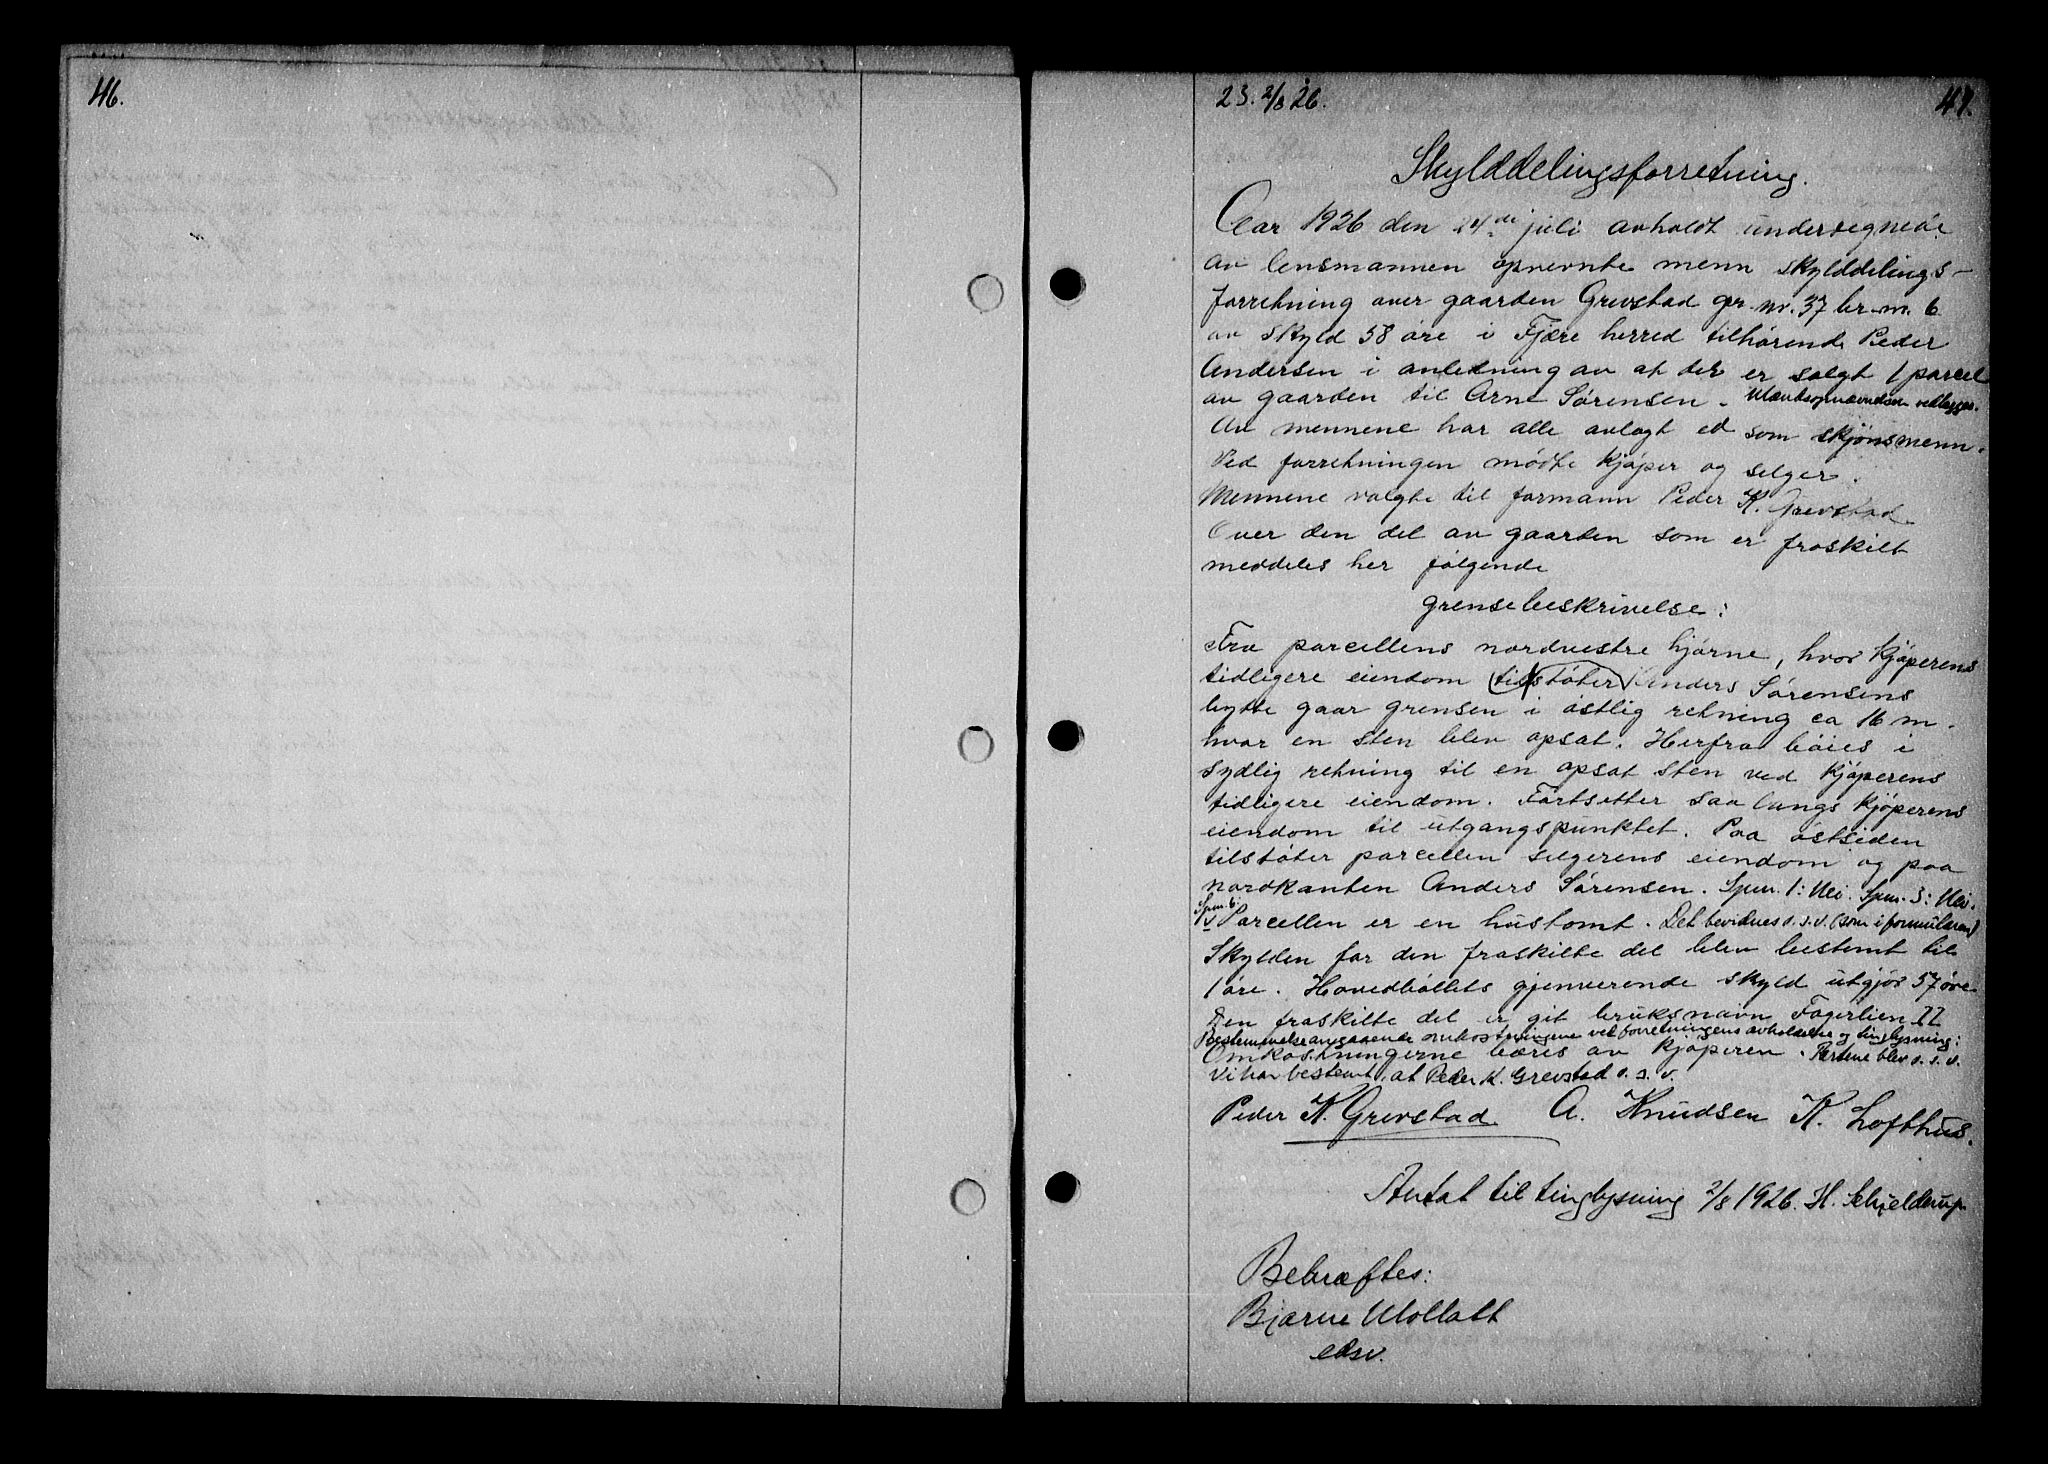 46.
23. 2/8 26.
47.
Skylddelingsforretning.
Aar 1926 den 24de juli avholdt undertegnede
av lensmannen opnevnte menn skylddelings-
forretning over gaarden Grevstad gr. nr. 37 br. nr. 6
av skyld 58 øre i Fjære herred tilhørende Peder
Andersen i anledning av at der er solgt 1 parcel
av gaarden til Arne Sørensen. Mandsopnævnelsen vedlegges.
Av mennene har alle avlagt ed som skjønsmenn.
Ved forretningen mødte kjøper og selger.
Mennene valgte til formann Peder K. Grevstad
Over den del av gaarden som er fraskilt
meddeles her følgende
grensebeskrivelse:
Fra parcellens nordvestre hjørne, hvor kjøperens
tidligere eiendom tilstøter Anders Sørensens
bytte gaar grensen i østlig retning ca 16 m.
hvor en sten blev opsat. Herfra bøies i
sydlig retning til en opsat sten ved kjøperens
tidligere eiendom. Fortsetter saa langs kjøperens
eiendom til utgangspunktet. Paa østsiden
tilstøter parcellen selgerens eiendom og paa
nordkanten Anders Sørensen. Spm. 1: Nei. Spm. 3: Nei.
Spm. 6:
Parcellen er en hustomt. Det bevidnes o. s. v. (som i formularen)
Skylden for den fraskilte del blev bestemt til
1 øre. Hovedbøllets gjenverende skyld utgjør 57 øre
Den fraskilte del er git bruksnavn Fagerlien II
Bestemmelse angaaende omkostningene ved forretningens avholdelse og tinglysning:
Omkostningerne bæres av kjøperen. Partene blev o. s. v.
Vi har bestemt, at Peder K. Grevstad o. s. v.
Peder K. Grevstad A. Knudsen K. Lofthus.
Antat til tinglysning 2/8 1926. H. Schjelderup
Bekræftes:
Bjarne Mollatt
edsv.